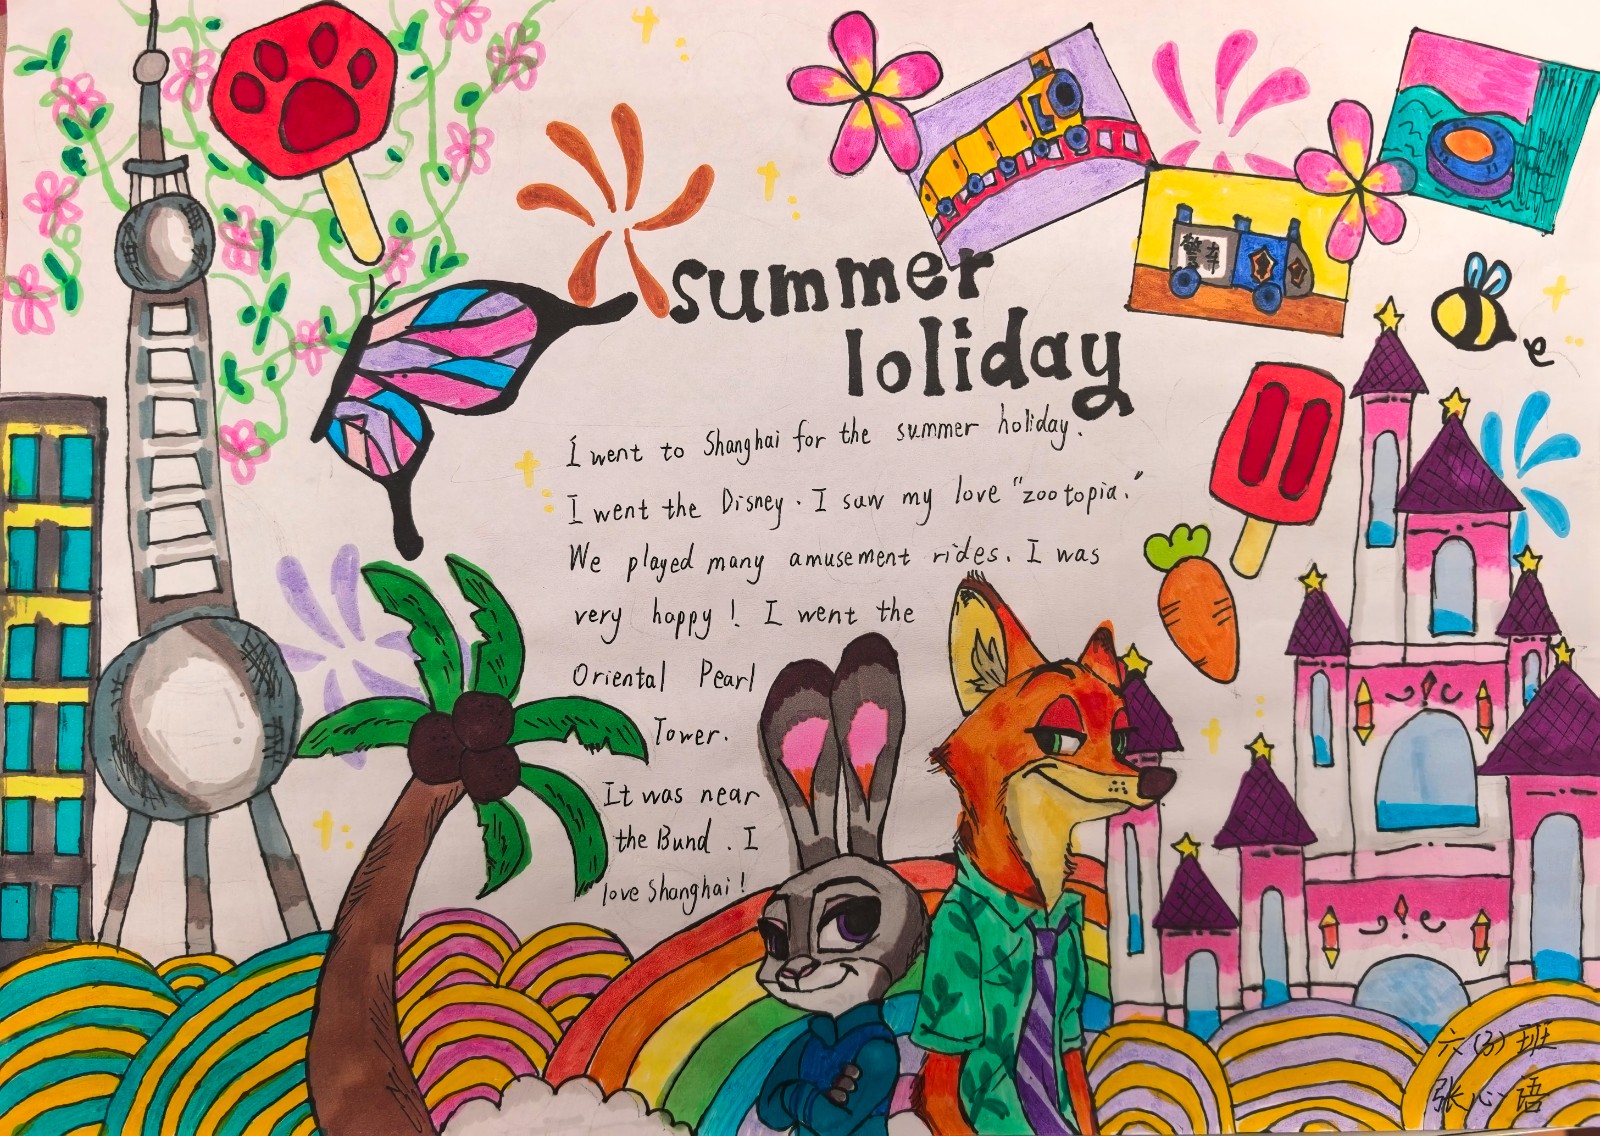 summer
loliday
警察
I went to Shanghai for the summer holiday.
I went the Disney. I saw my love "zootopia."
We played many amusement rides. I was
very happy! I went the
Oriental Pearl
Tower.
It was near
the Bund. I
love Shanghai!
六(3)班
张心语